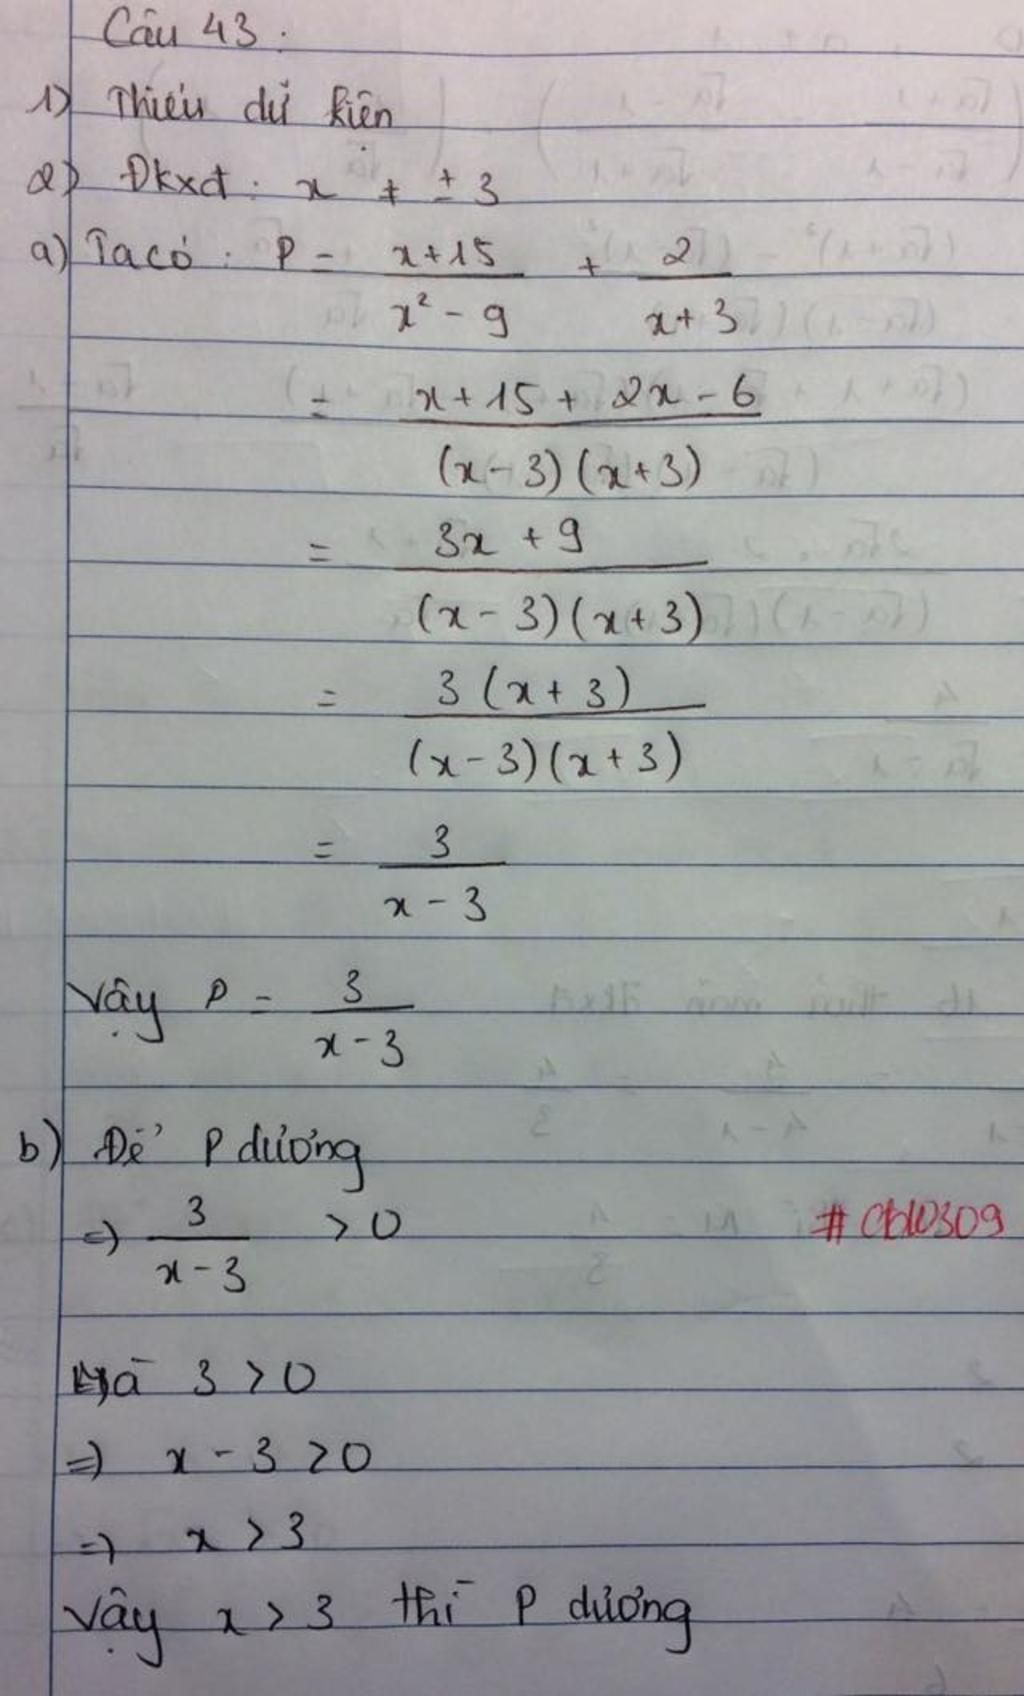 Câu 43:
1) Thiếu dữ kiện
2) Đkxđ: x ≠ ± 3
a) Ta có: P = (x+15)/(x² - 9) + 2/(x+3)
= (x+15+2x-6)/((x-3)(x+3))
= (3x+9)/((x-3)(x+3))
= (3(x+3))/((x-3)(x+3))
= 3/(x-3)
Vậy P = 3/(x-3)
b) Để P dương
=> 3/(x-3) > 0
Mà 3 > 0
=> x - 3 > 0
=> x > 3
Vậy x > 3 thì P dương